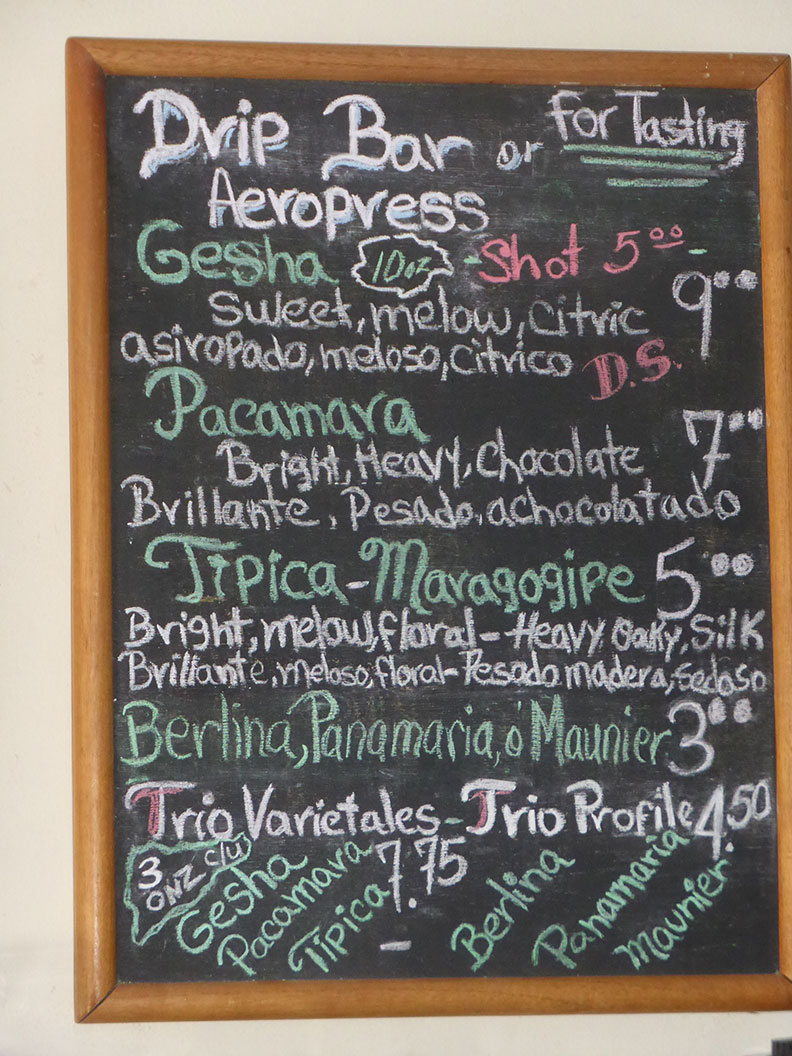 Drip Bar or For Tasting
Aeropress
Gesha 10oz - Shot 5.00 -
Sweet, melow, citric 9.00
asiropado, meloso, citrico D.S.
Pacamara
Bright, Heavy, chocolate 7.00
Brillante, Pesado, achocolatado
Tipica - Maragogipe 5.00
Bright, melow, floral - Heavy, oaky, silk
Brillante, meloso, floral - Pesado madera, sedoso
Berlina, Panamaria, ó Maunier 3.00
Trio Varietales - Trio Profile 4.50
3 onz c/u
Gesha
Pacamara
Tipica 7.75
Berlina
Panamaria
Maunier